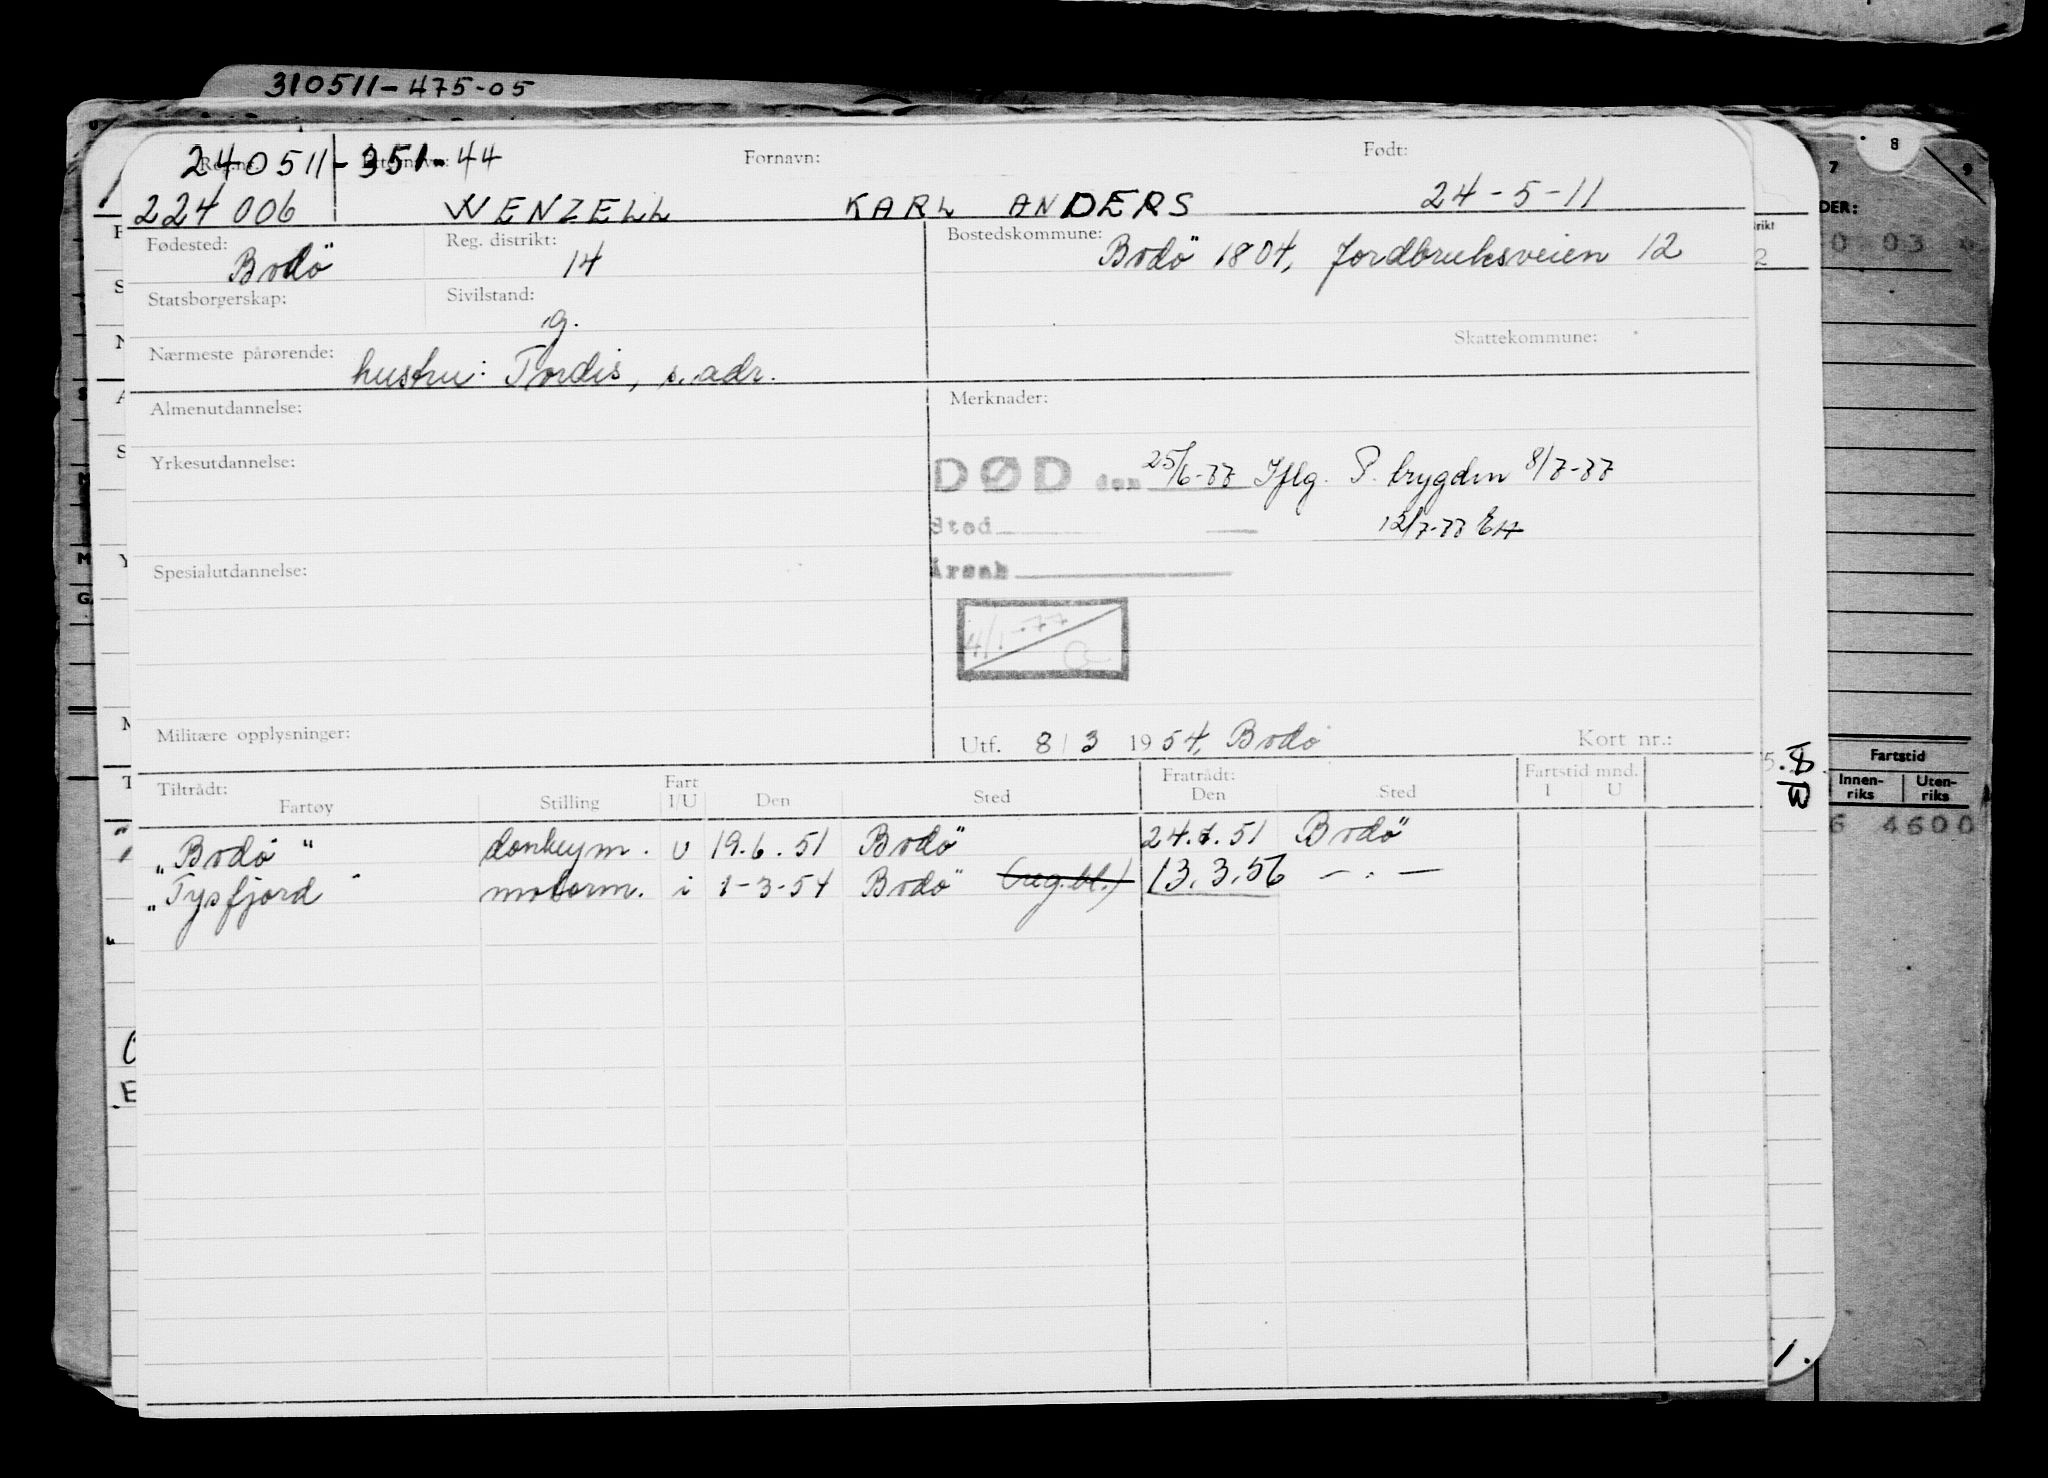 310511-475-05
240511-351-44
Etternavn: Fornavn: Født:
224006 WENZELL KARL ANDERS 24-5-11
Fødested: Bodö Reg. distrikt: 14 Bostedskommune: Bodö 1804, Jordbruksveien 12
Statsborgerskap: Sivilstand: g.
Skattekommune:
Nærmeste pårørende: hustru: Tordis, s. adr.
Almenutdannelse: Merknader:
Yrkesutdannelse: DØD den 25/6-77 Iflg. P. trygden 8/7-77
Sted 12/7-77 EH
Årsak
Spesialutdannelse:
4/1-77
Militære opplysninger: Utf. 8/3 1954, Bodö Kort nr.:
Tiltrådt: Fart Fratrådt: Fartstid mnd.
Fartøy Stilling I/U Den Sted Den Sted I U
"Bodö" donkeym. U 19.6.51 Bodö 24.6.51 Bodö
"Tysfjord" motorm. i 1-3-54 Bodö (reg.bl.) 13.3.56 -.-
7 8 9
DER:
0 03
Fartstid
Innen- Uten-
riks riks
6 4600
8
W
1.